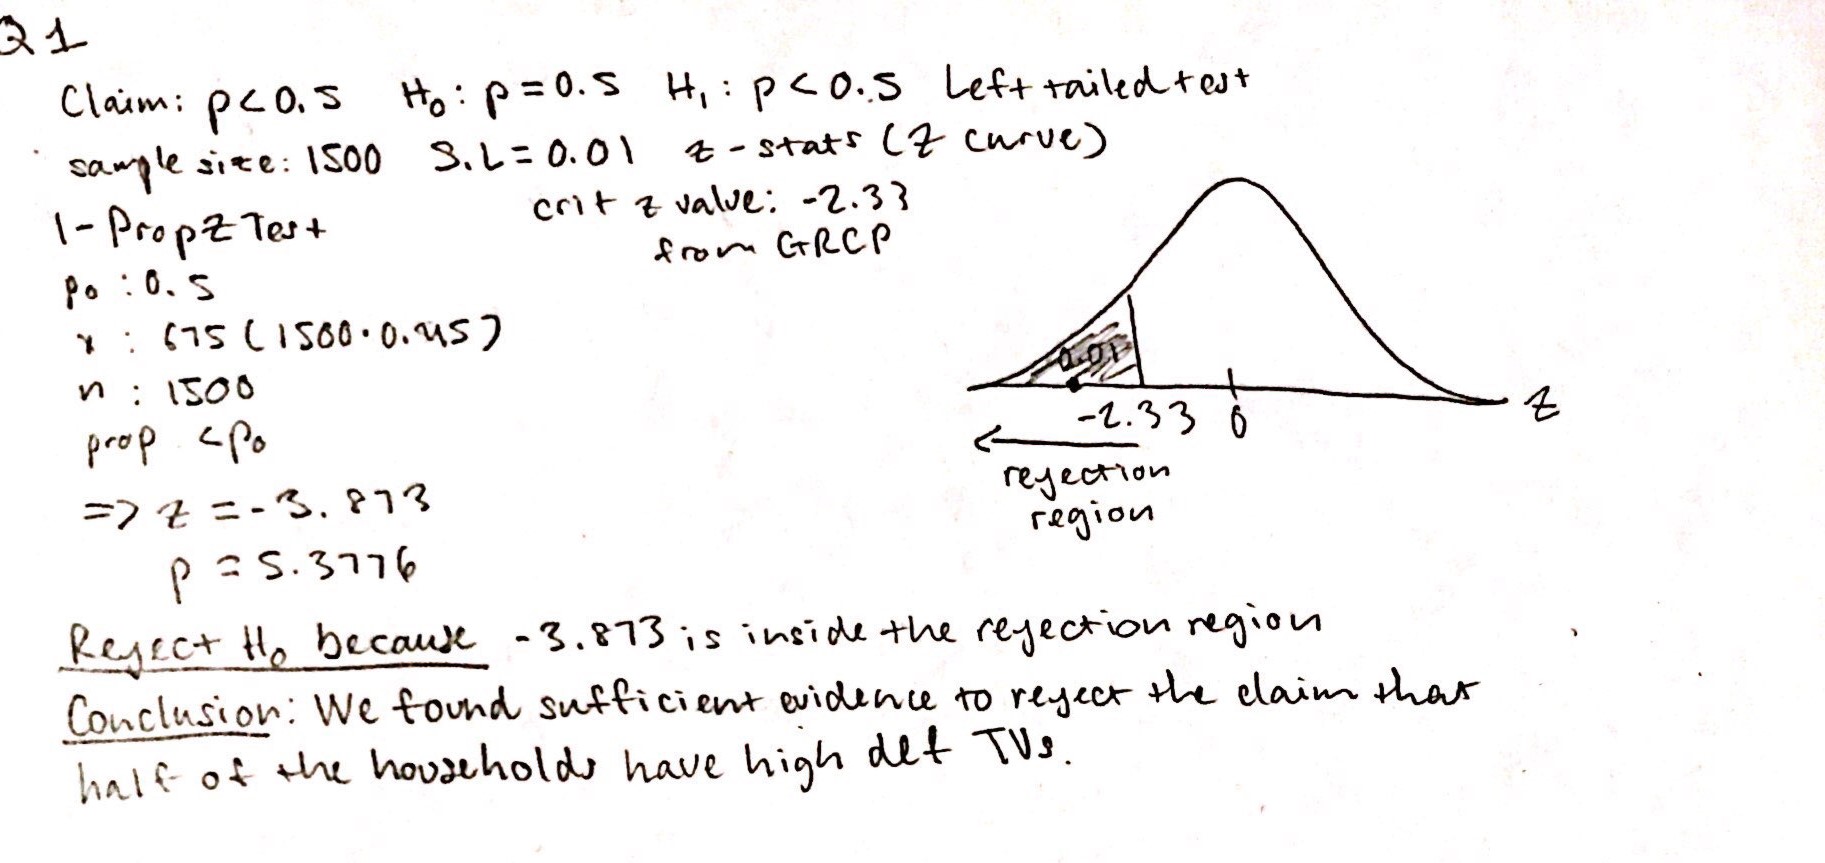 Q1
Claim: p<0.5 H₀: p=0.5 H₁: p<0.5 Left tailed test
sample size: 1500 S.L=0.01 z-stats (Z curve)
crit z value: -2.33
from GRCP
1-PropZTest
p₀ : 0.5
x : 675 (1500·0.45)
n : 1500
prop <p₀
=> z = -3.873
p = 5.3776
0.01
-2.33 0 z
rejection
region
Reject H₀ because -3.873 is inside the rejection region
Conclusion: We found sufficient evidence to reject the claim that
half of the households have high def TVs.